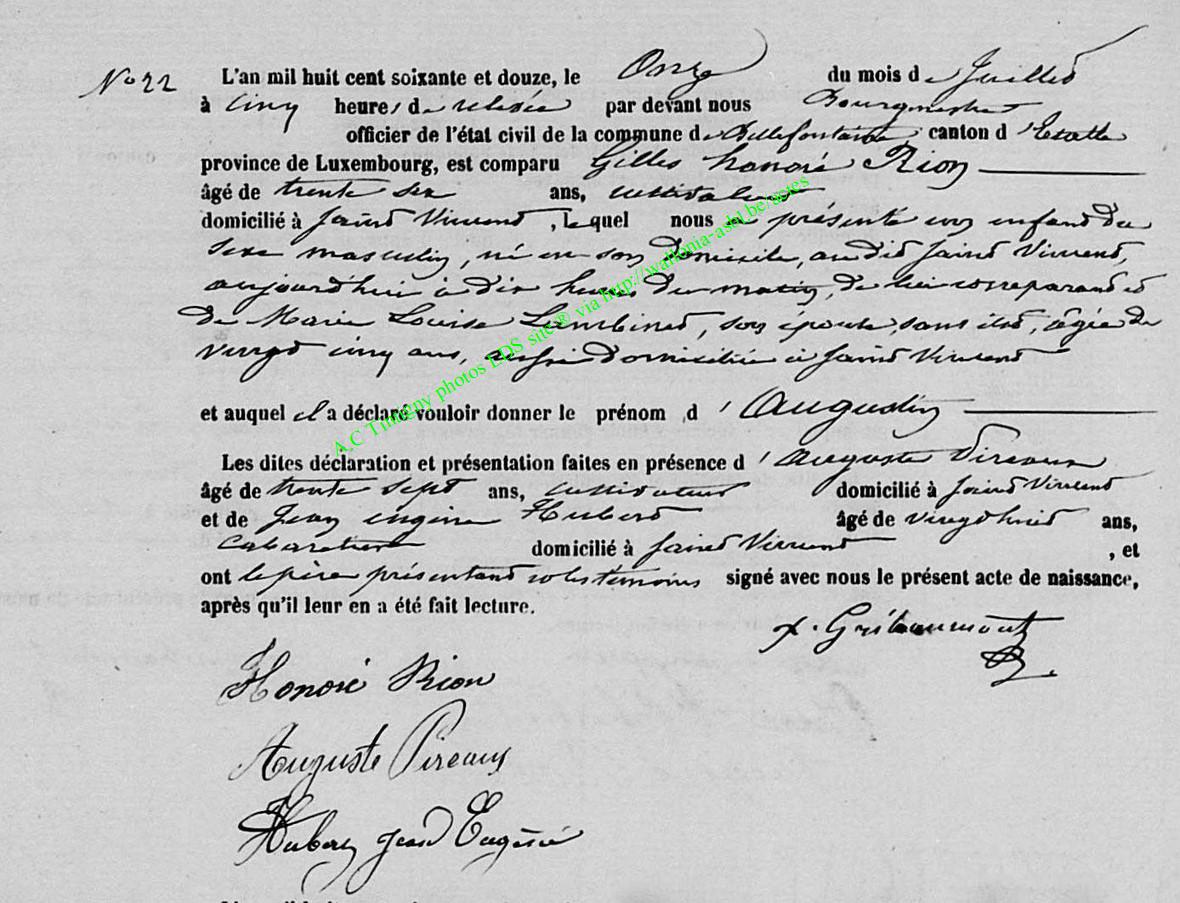 No 22
L'an mil huit cent soixante et douze, le Onze du mois de Juillet
à cinq heures de relevée par devant nous Bourgmestre
officier de l'état civil de la commune de Bellefontaine canton d'Etalle
province de Luxembourg, est comparu Gilles honoré Rion
âgé de trente six ans, cultivateur
domicilié à Saint Vincent, lequel nous a présenté un enfant du
sexe masculin, né en son domicile, au dit Saint Vincent,
aujourd'hui à dix heures du matin, de lui comparant et
de Marie Louise Lambinet, son épouse, sans état, âgée de
vingt cinq ans, aussi domiciliée à Saint Vincent
et auquel il a déclaré vouloir donner le prénom d'Augustin
Les dites déclaration et présentation faites en présence d'Auguste Pireaux
âgé de trente sept ans, cultivateur domicilié à Saint Vincent
et de Jean eugène Hubert âgé de vingt huit ans,
Cabaretier domicilié à Saint Vincent , et
ont le père présentant et les témoins signé avec nous le présent acte de naissance,
après qu'il leur en a été fait lecture.
x. Gribaumont
Honoré Rion
Auguste Pireaux
Hubert Jean Eugène
A.C Tintigny photos EDS site® via http://wallonia-asbl.be/actes